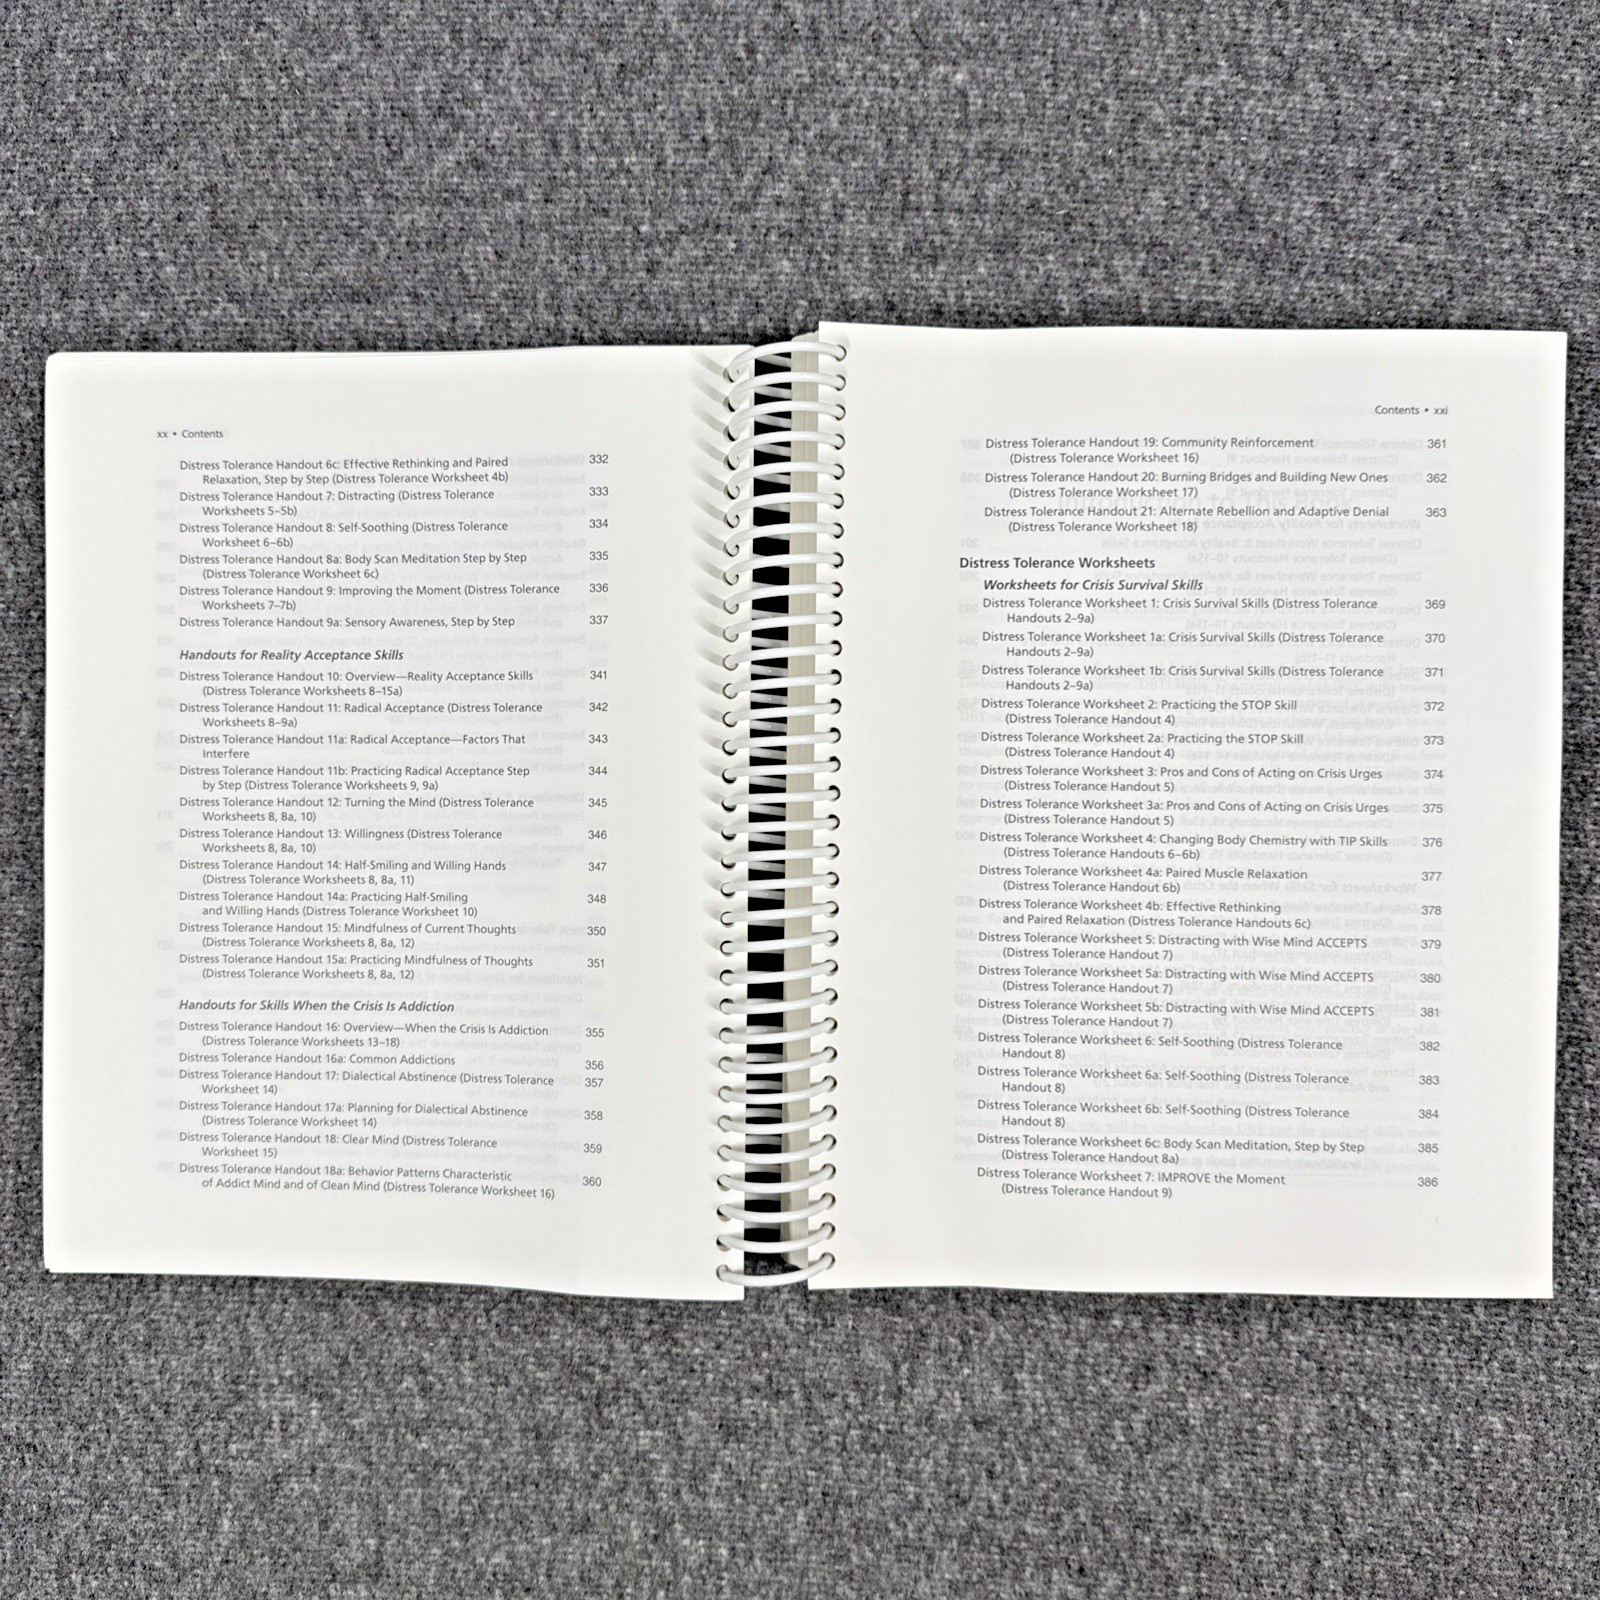 xx • Contents
Distress Tolerance Handout 6c: Effective Rethinking and Paired 332
Relaxation, Step by Step (Distress Tolerance Worksheet 4b)
Distress Tolerance Handout 7: Distracting (Distress Tolerance 333
Worksheets 5–5b)
Distress Tolerance Handout 8: Self-Soothing (Distress Tolerance 334
Worksheet 6–6b)
Distress Tolerance Handout 8a: Body Scan Meditation Step by Step 335
(Distress Tolerance Worksheet 6c)
Distress Tolerance Handout 9: Improving the Moment (Distress Tolerance 336
Worksheets 7–7b)
Distress Tolerance Handout 9a: Sensory Awareness, Step by Step 337
Handouts for Reality Acceptance Skills
Distress Tolerance Handout 10: Overview—Reality Acceptance Skills 341
(Distress Tolerance Worksheets 8–15a)
Distress Tolerance Handout 11: Radical Acceptance (Distress Tolerance 342
Worksheets 8–9a)
Distress Tolerance Handout 11a: Radical Acceptance—Factors That 343
Interfere
Distress Tolerance Handout 11b: Practicing Radical Acceptance Step 344
by Step (Distress Tolerance Worksheets 9, 9a)
Distress Tolerance Handout 12: Turning the Mind (Distress Tolerance 345
Worksheets 8, 8a, 10)
Distress Tolerance Handout 13: Willingness (Distress Tolerance 346
Worksheets 8, 8a, 10)
Distress Tolerance Handout 14: Half-Smiling and Willing Hands 347
(Distress Tolerance Worksheets 8, 8a, 11)
Distress Tolerance Handout 14a: Practicing Half-Smiling 348
and Willing Hands (Distress Tolerance Worksheet 10)
Distress Tolerance Handout 15: Mindfulness of Current Thoughts 350
(Distress Tolerance Worksheets 8, 8a, 12)
Distress Tolerance Handout 15a: Practicing Mindfulness of Thoughts 351
(Distress Tolerance Worksheets 8, 8a, 12)
Handouts for Skills When the Crisis Is Addiction
Distress Tolerance Handout 16: Overview—When the Crisis Is Addiction 355
(Distress Tolerance Worksheets 13–18)
Distress Tolerance Handout 16a: Common Addictions 356
Distress Tolerance Handout 17: Dialectical Abstinence (Distress Tolerance 357
Worksheet 14)
Distress Tolerance Handout 17a: Planning for Dialectical Abstinence 358
(Distress Tolerance Worksheet 14)
Distress Tolerance Handout 18: Clear Mind (Distress Tolerance 359
Worksheet 15)
Distress Tolerance Handout 18a: Behavior Patterns Characteristic 360
of Addict Mind and of Clean Mind (Distress Tolerance Worksheet 16)
Contents • xxi
Distress Tolerance Handout 19: Community Reinforcement 361
(Distress Tolerance Worksheet 16)
Distress Tolerance Handout 20: Burning Bridges and Building New Ones 362
(Distress Tolerance Worksheet 17)
Distress Tolerance Handout 21: Alternate Rebellion and Adaptive Denial 363
(Distress Tolerance Worksheet 18)
Distress Tolerance Worksheets
Worksheets for Crisis Survival Skills
Distress Tolerance Worksheet 1: Crisis Survival Skills (Distress Tolerance 369
Handouts 2–9a)
Distress Tolerance Worksheet 1a: Crisis Survival Skills (Distress Tolerance 370
Handouts 2–9a)
Distress Tolerance Worksheet 1b: Crisis Survival Skills (Distress Tolerance 371
Handouts 2–9a)
Distress Tolerance Worksheet 2: Practicing the STOP Skill 372
(Distress Tolerance Handout 4)
Distress Tolerance Worksheet 2a: Practicing the STOP Skill 373
(Distress Tolerance Handout 4)
Distress Tolerance Worksheet 3: Pros and Cons of Acting on Crisis Urges 374
(Distress Tolerance Handout 5)
Distress Tolerance Worksheet 3a: Pros and Cons of Acting on Crisis Urges 375
(Distress Tolerance Handout 5)
Distress Tolerance Worksheet 4: Changing Body Chemistry with TIP Skills 376
(Distress Tolerance Handouts 6–6b)
Distress Tolerance Worksheet 4a: Paired Muscle Relaxation 377
(Distress Tolerance Handout 6b)
Distress Tolerance Worksheet 4b: Effective Rethinking 378
and Paired Relaxation (Distress Tolerance Handouts 6c)
Distress Tolerance Worksheet 5: Distracting with Wise Mind ACCEPTS 379
(Distress Tolerance Handout 7)
Distress Tolerance Worksheet 5a: Distracting with Wise Mind ACCEPTS 380
(Distress Tolerance Handout 7)
Distress Tolerance Worksheet 5b: Distracting with Wise Mind ACCEPTS 381
(Distress Tolerance Handout 7)
Distress Tolerance Worksheet 6: Self-Soothing (Distress Tolerance 382
Handout 8)
Distress Tolerance Worksheet 6a: Self-Soothing (Distress Tolerance 383
Handout 8)
Distress Tolerance Worksheet 6b: Self-Soothing (Distress Tolerance 384
Handout 8)
Distress Tolerance Worksheet 6c: Body Scan Meditation, Step by Step 385
(Distress Tolerance Handout 8a)
Distress Tolerance Worksheet 7: IMPROVE the Moment 386
(Distress Tolerance Handout 9)